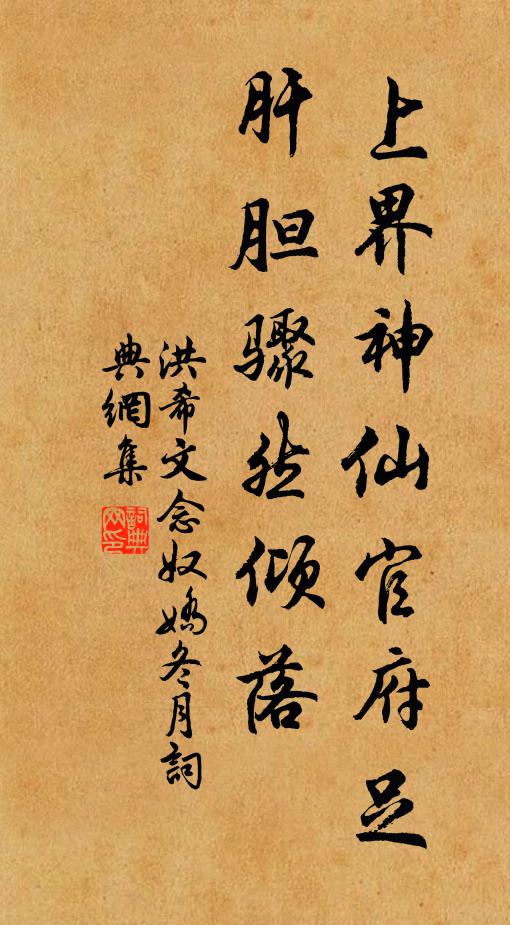 上界神仙官府足
肝胆骤然倾落
洪希文念奴嬌冬月詞
典網集
詞典网印